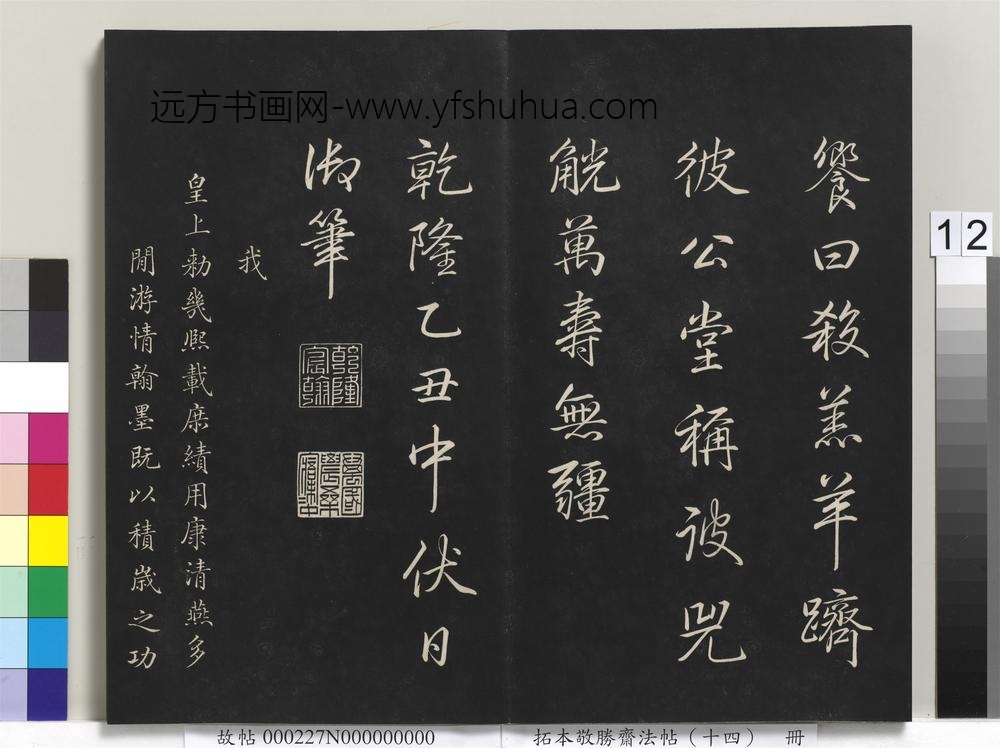 远方书画网-www.yfshuhua.com
饗曰殺羔羊躋
彼公堂稱彼兕
觥萬壽無疆
乾隆乙丑中伏日
御筆
乾隆宸翰
我
皇上勅幾熙載庶績用康清燕多
閒游情翰墨既以積歲之功
12
故帖 000227N000000000
拓本敬勝齋法帖（十四） 冊